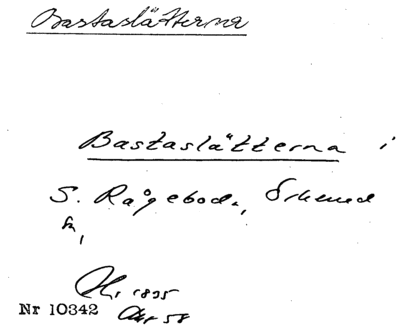 Bastaslätterna
Bastaslätterna i
S. Rågebod.,
sn,
1895
Nr 10342 Akt 58